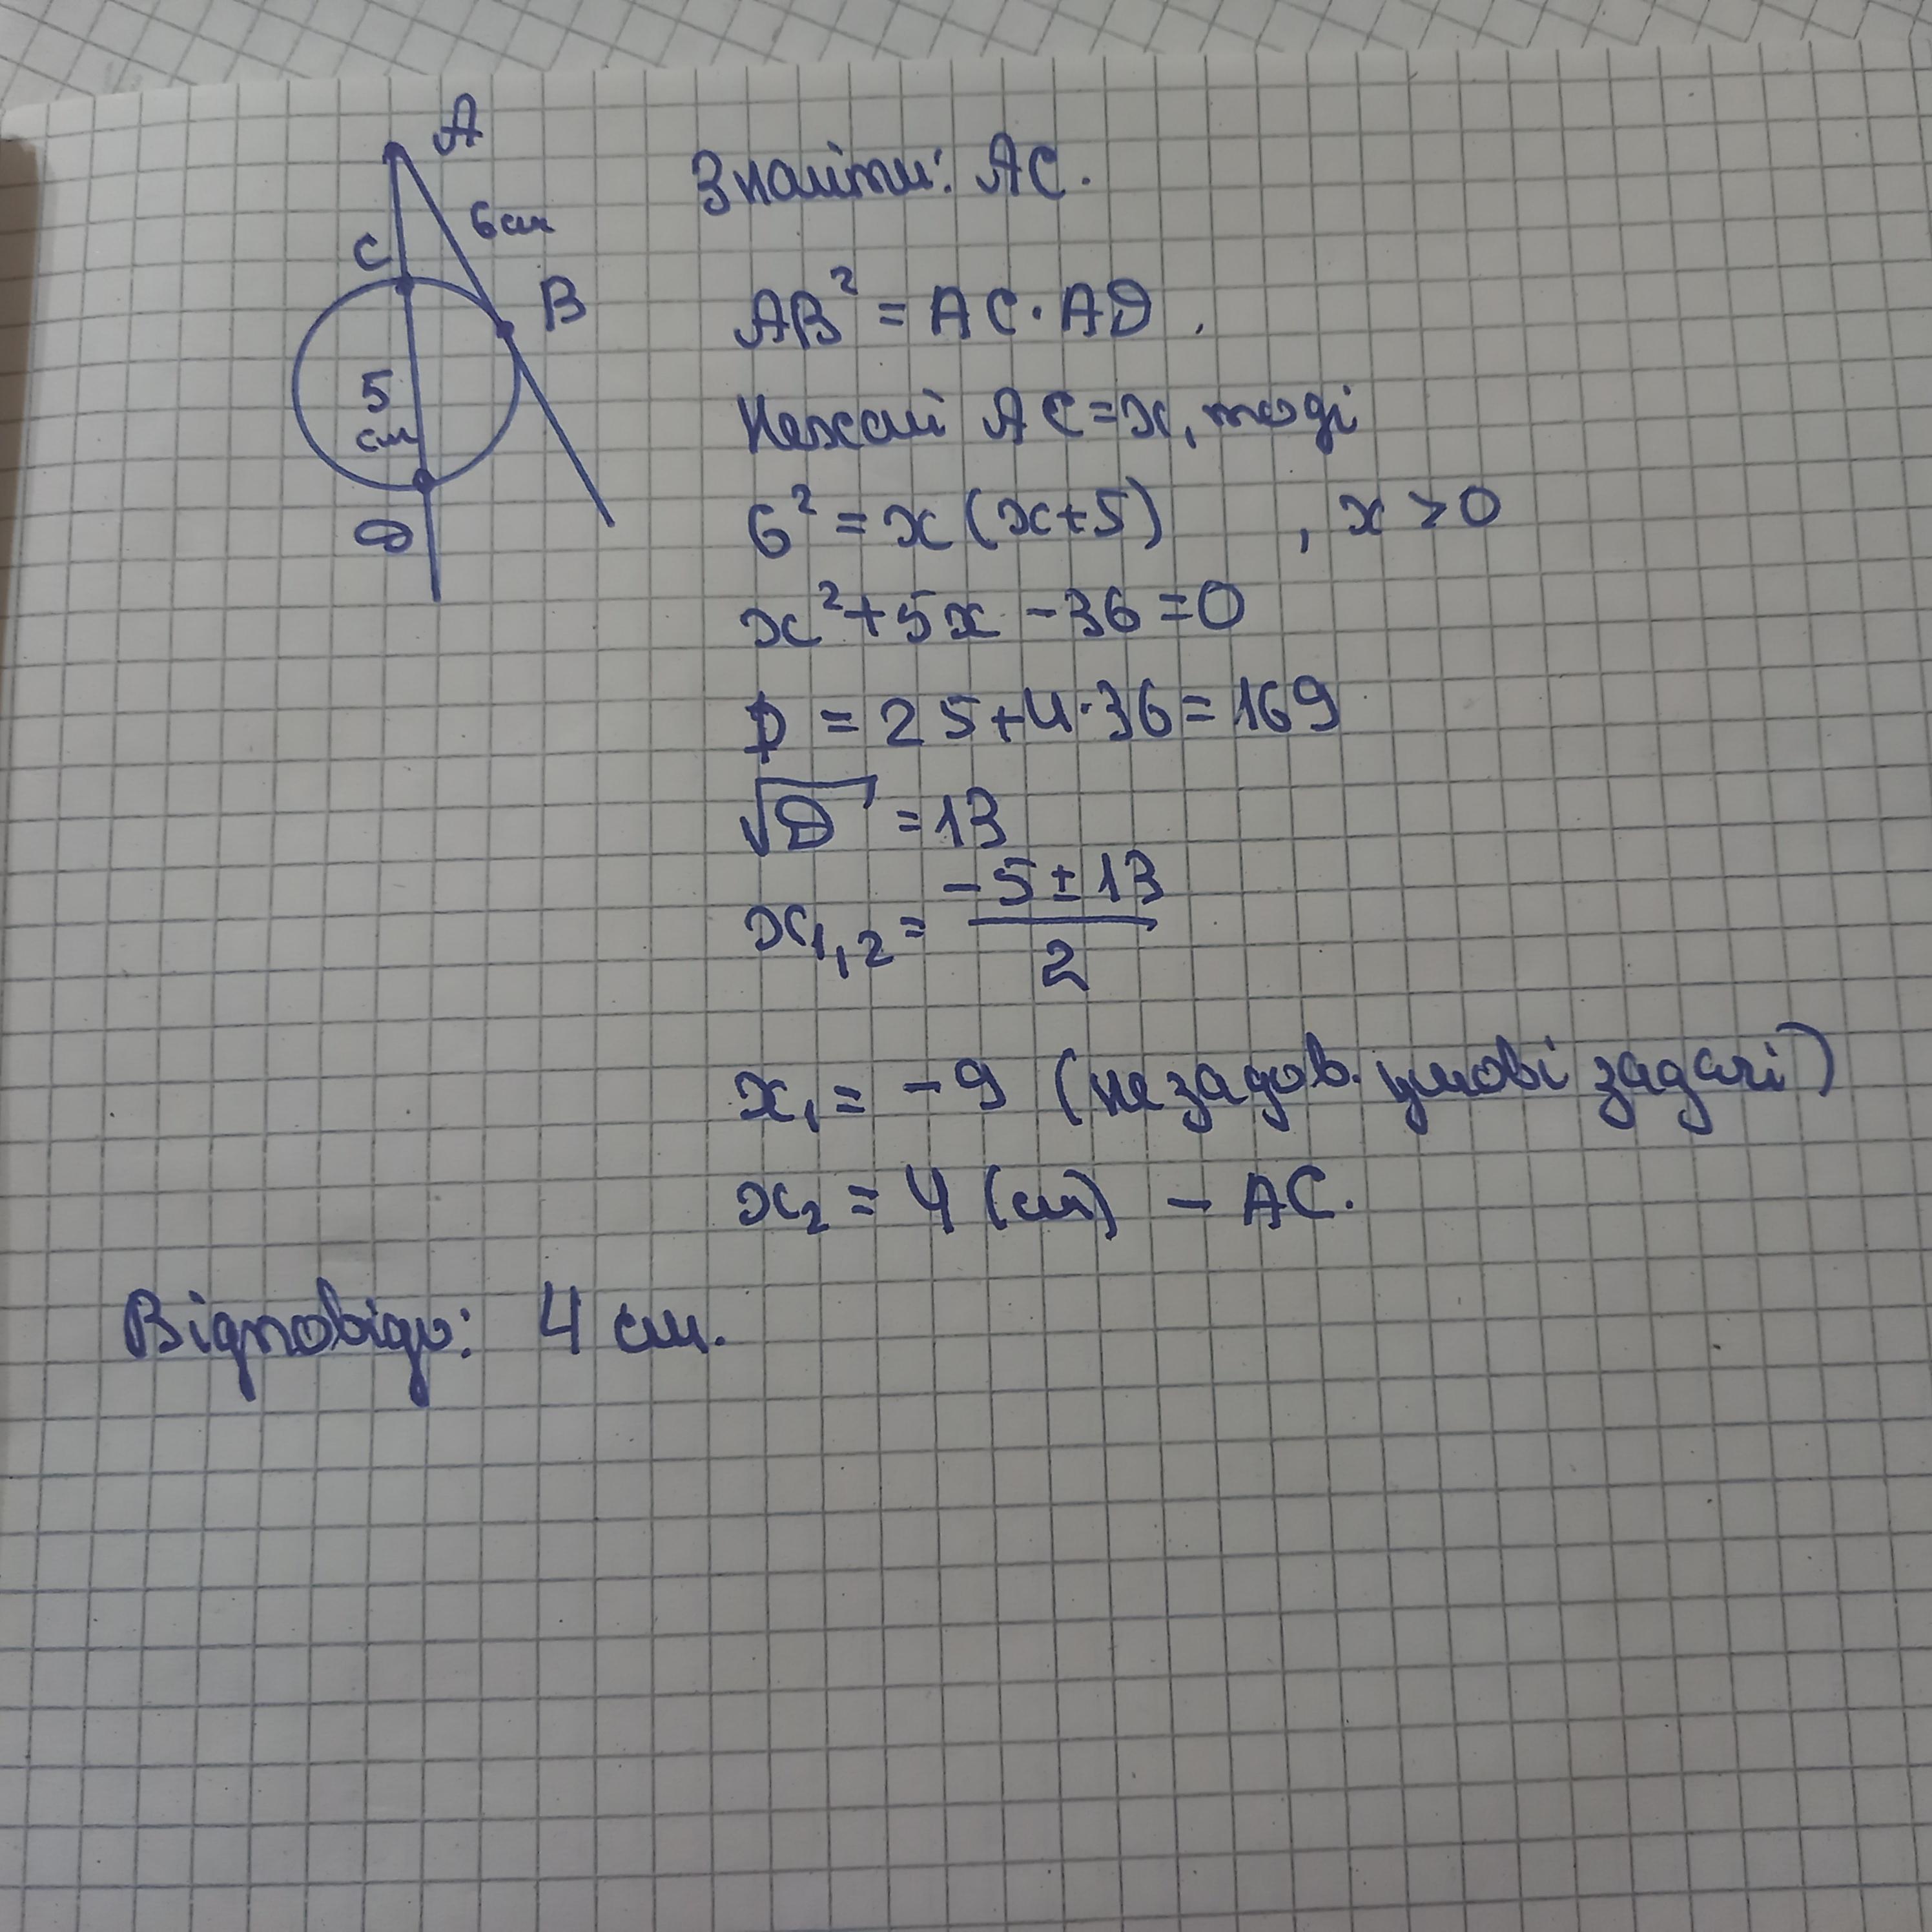 A
6 см
C
B
5
см
D
Знайти: AC.
AB² = AC · AD,
Нехай AC = x, тоді
6² = x(x+5) , x > 0
x² + 5x - 36 = 0
D = 25 + 4·36 = 169
√D = 13
x₁,₂ = (-5 ± 13)/2
x₁ = -9 (не задов. умові задачі)
x₂ = 4 (см) - AC.
Відповідь: 4 см.